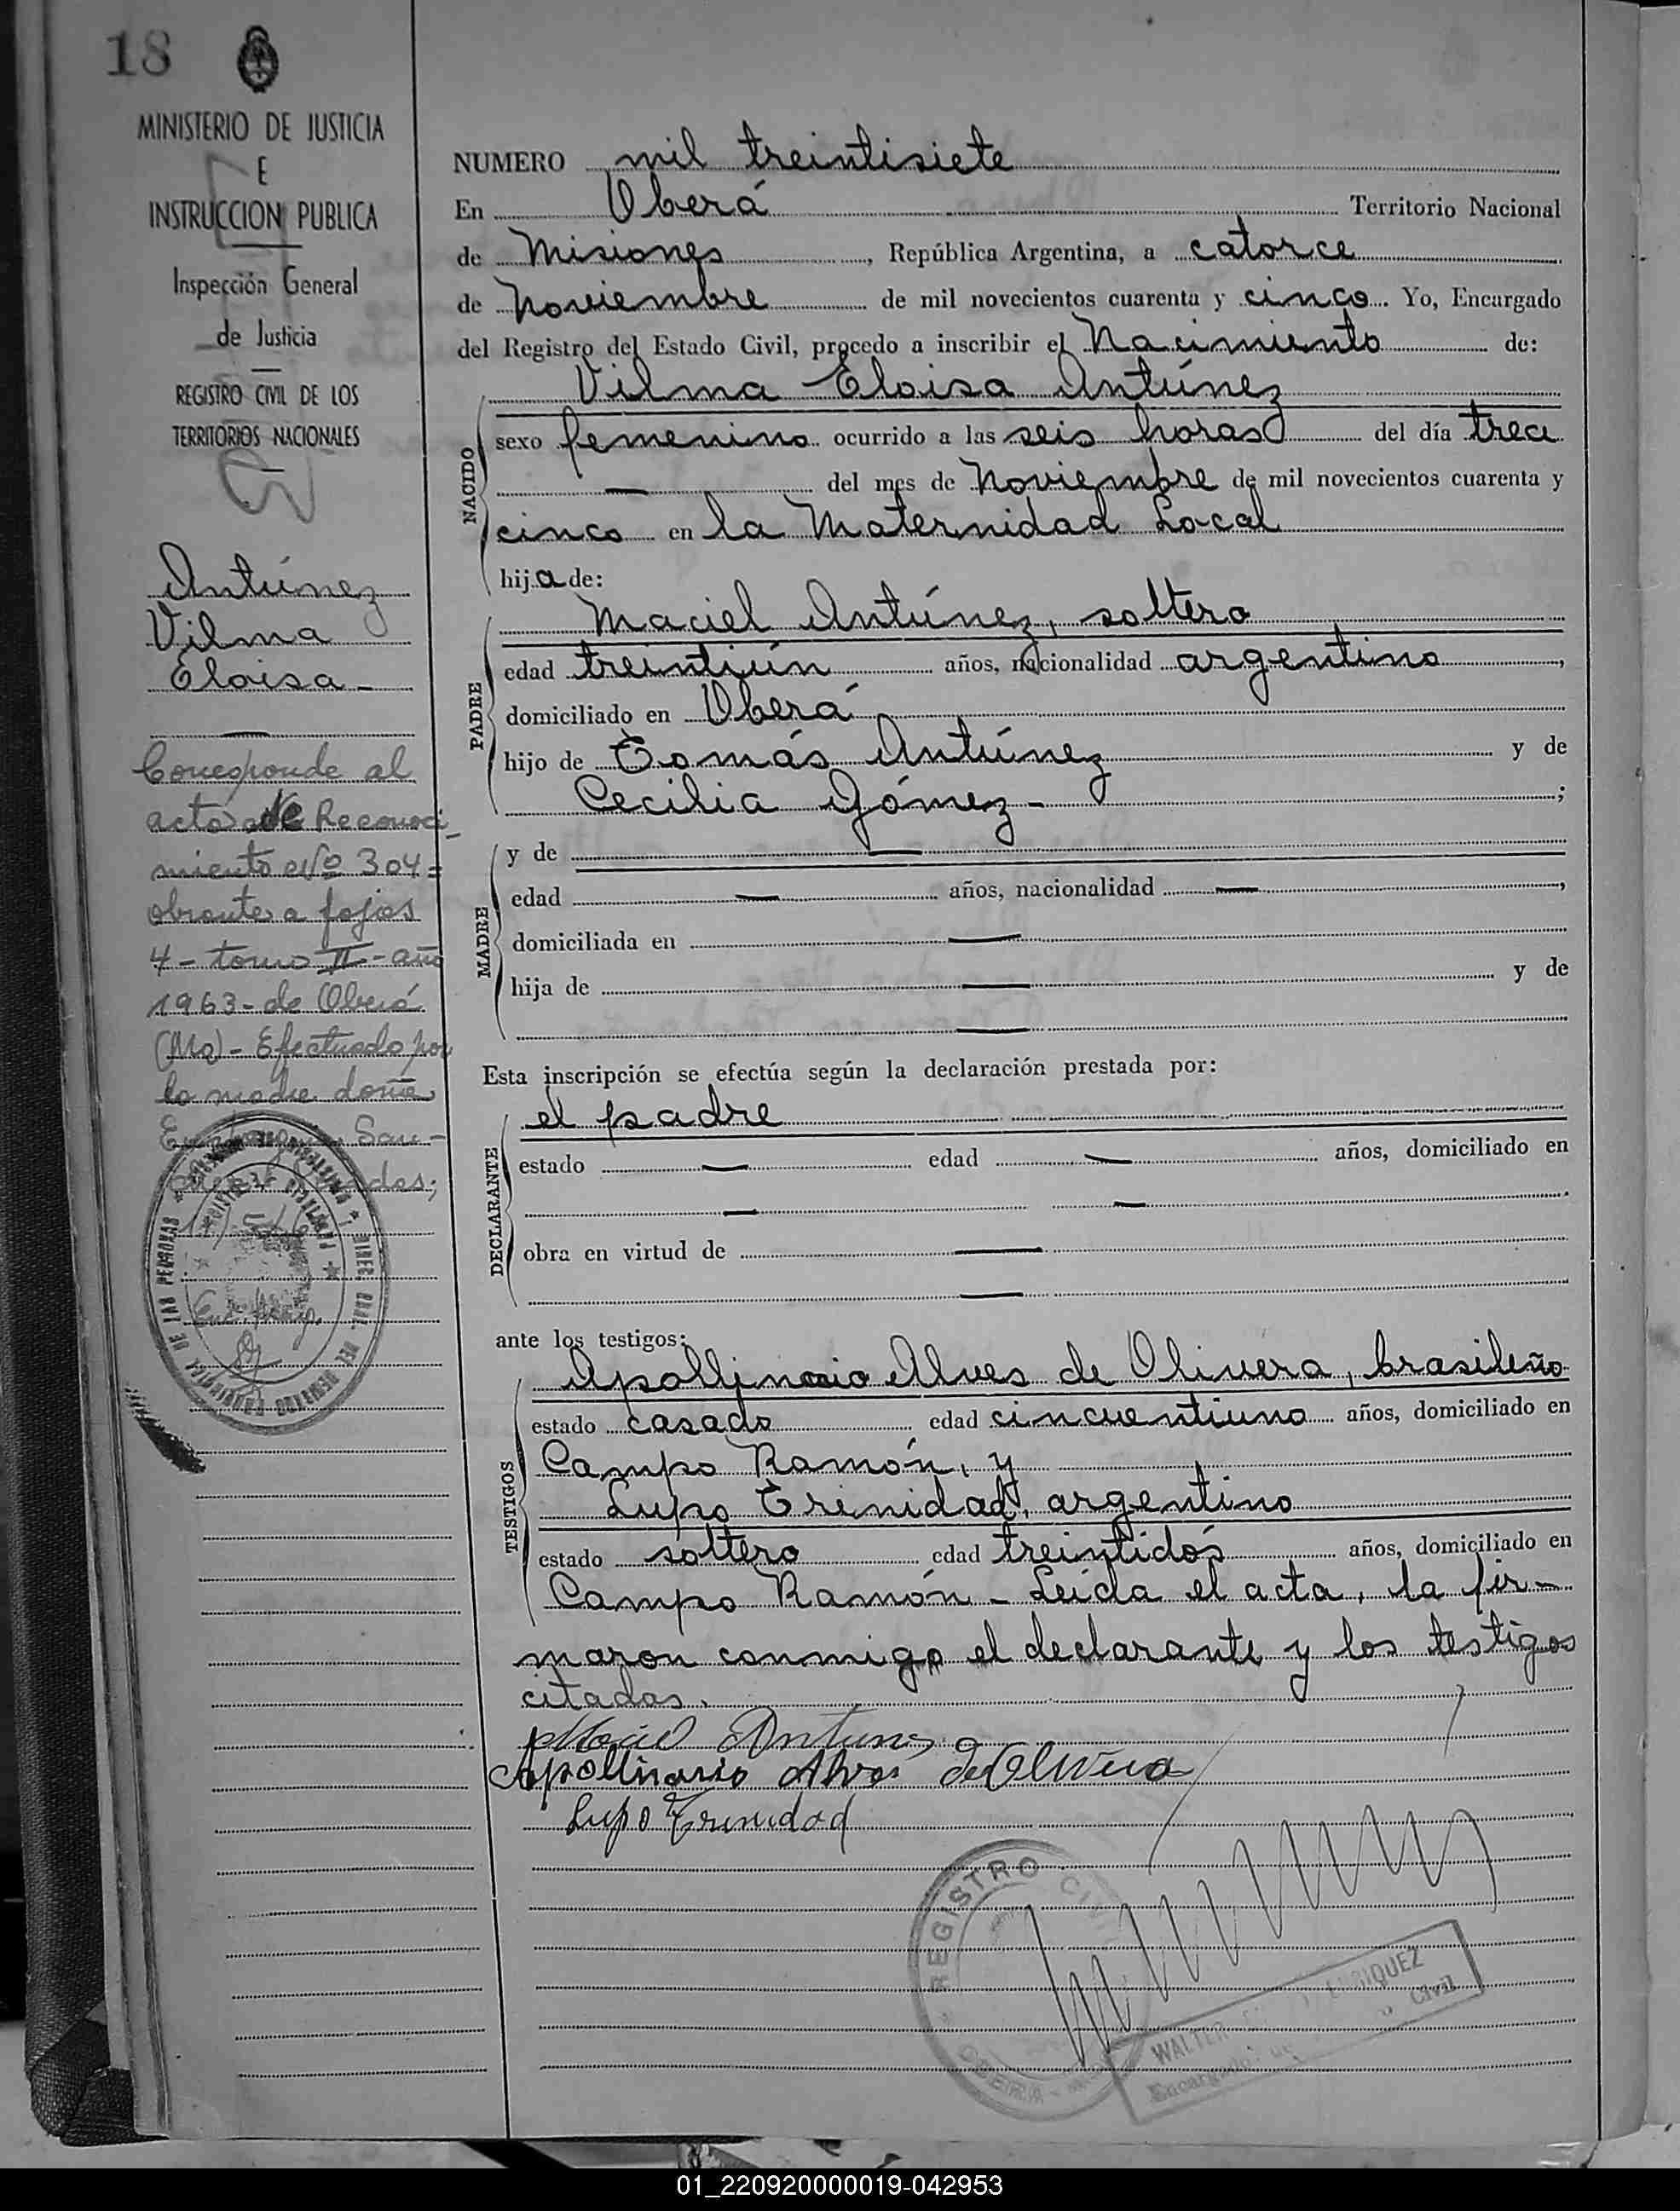 18
MINISTERIO DE JUSTICIA
E
INSTRUCCION PUBLICA
Inspección General
de Justicia
REGISTRO CIVIL DE LOS
TERRITORIOS NACIONALES
Antúnez
Vilma
Eloisa -
Corresponde al
acta de Reconoci-
miento Nº 304 =
obrante a fojas
4 - tomo II - año
1963 - de Oberá
(Mo) - Efectuado por
la madre doña
NUMERO mil treintisiete
En Oberá Territorio Nacional
de Misiones, República Argentina, a catorce
de Noviembre de mil novecientos cuarenta y cinco. Yo, Encargado
del Registro del Estado Civil, procedo a inscribir el Nacimiento de:
Vilma Eloisa Antúnez
NACIDO
sexo femenino ocurrido a las seis horas del día trece
— del mes de Noviembre de mil novecientos cuarenta y
cinco en la Maternidad Local
hija de:
Maciel Antúnez, soltero
PADRE
edad treintiún años, nacionalidad argentino,
domiciliado en Oberá
hijo de Tomás Antúnez y de
Cecilia Gómez - ;
MADRE
y de —
edad — años, nacionalidad —,
domiciliada en —
hija de — y de
—
Esta inscripción se efectúa según la declaración prestada por:
el padre
DECLARANTE
estado — edad — años, domiciliado en
— —
obra en virtud de —
—
ante los testigos:
Apollinario Alves de Olivera, brasileño
TESTIGOS
estado casado, edad cincuentiuno años, domiciliado en
Campo Ramón, y
Lupo Trinidad, argentino
estado soltero edad treintidós años, domiciliado en
Campo Ramón - Leída el acta, la fir-
maron conmigo el declarante y los testigos
citados.
Maciel Antunes
Apollinario Alves de Olivera
Lupo Trinidad
REGISTRO CIVIL
WALTER
Civil
01_220920000019-042953